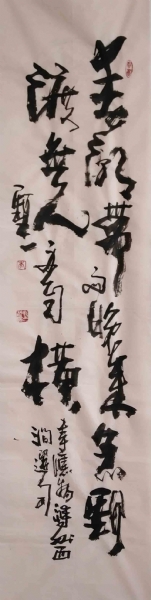 春潮带雨晚来急野
渡无人舟自横
韦应物滁州西
涧选句